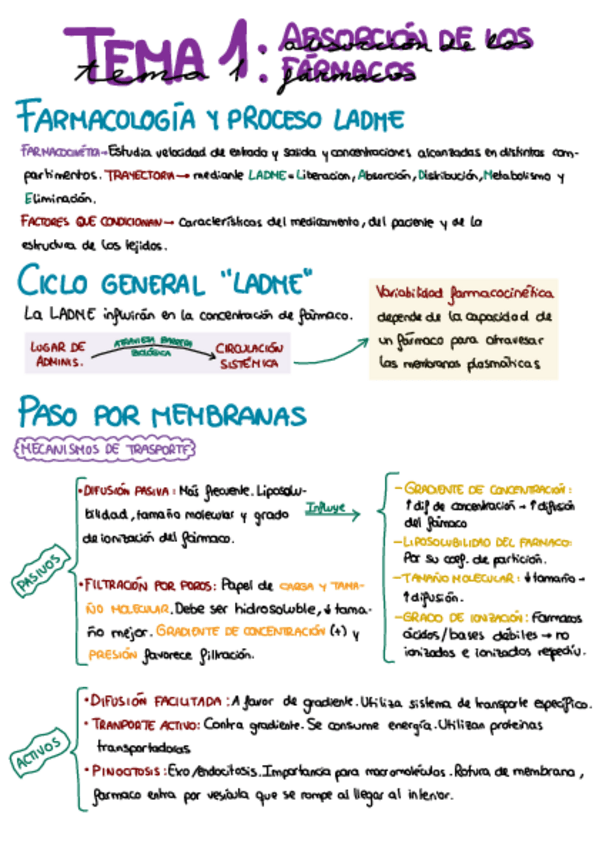 TEMA 1: ABSORCIÓN DE LOS FÁRMACOS
tema 1 absorción de los fármacos
FARMACOLOGÍA Y PROCESO LADME
FARMACOCINÉTICA→Estudia velocidad de entrada y salida y concentraciones alcanzadas en distintos com-
partimentos. TRAYECTORIA→ mediante LADME = Liberación, Absorción, Distribución, Metabolismo y
Eliminación.
FACTORES QUE CONDICIONAN→ Características del medicamento, del paciente y de la
estructura de los tejidos.
CICLO GENERAL "LADME"
La LADME influirán en la concentración de fármaco.
LUGAR DE ADMINIS.
ATRAVIESA BARRERA BIOLÓGICA
CIRCULACIÓN SISTÉMICA
Variabilidad farmacocinética
depende de la capacidad de
un fármaco para atravesar
las membranas plasmáticas
PASO POR MEMBRANAS
MECANISMOS DE TRASPORTE
PASIVOS
• DIFUSIÓN PASIVA: Más frecuente. Liposolu-
bilidad, tamaño molecular y grado
de ionización del fármaco.
Influye
- GRADIENTE DE CONCENTRACIÓN:
↑ dif de concentración → ↑ difusión
del fármaco
- LIPOSOLUBILIDAD DEL FARMACO:
Por su coef. de partición.
- TAMAÑO MOLECULAR: ↓ tamaño →
↑ difusión.
- GRADO DE IONIZACIÓN: Farmacos
ácidos/bases débiles → no
ionizados e ionizados
• FILTRACIÓN POR POROS: Papel de CARGA Y TAMA-
ÑO MOLECULAR. Debe ser hidrosoluble, ↓ tama-
ño mejor. GRADIENTE DE CONCENTRACIÓN (+) y
PRESIÓN favorece filtración.
ACTIVOS
• DIFUSIÓN FACILITADA: A favor de gradiente. Utiliza sistema de transporte específico.
• TRANPORTE ACTIVO: Contra gradiente. Se consume energía. Utilizan proteinas
transportadoras
• PINOCITOSIS: Exo/endocitosis. Importancia para macromoléculas. Rotura de membrana,
farmaco entra por vesícula que se rompe al llegar al interior.